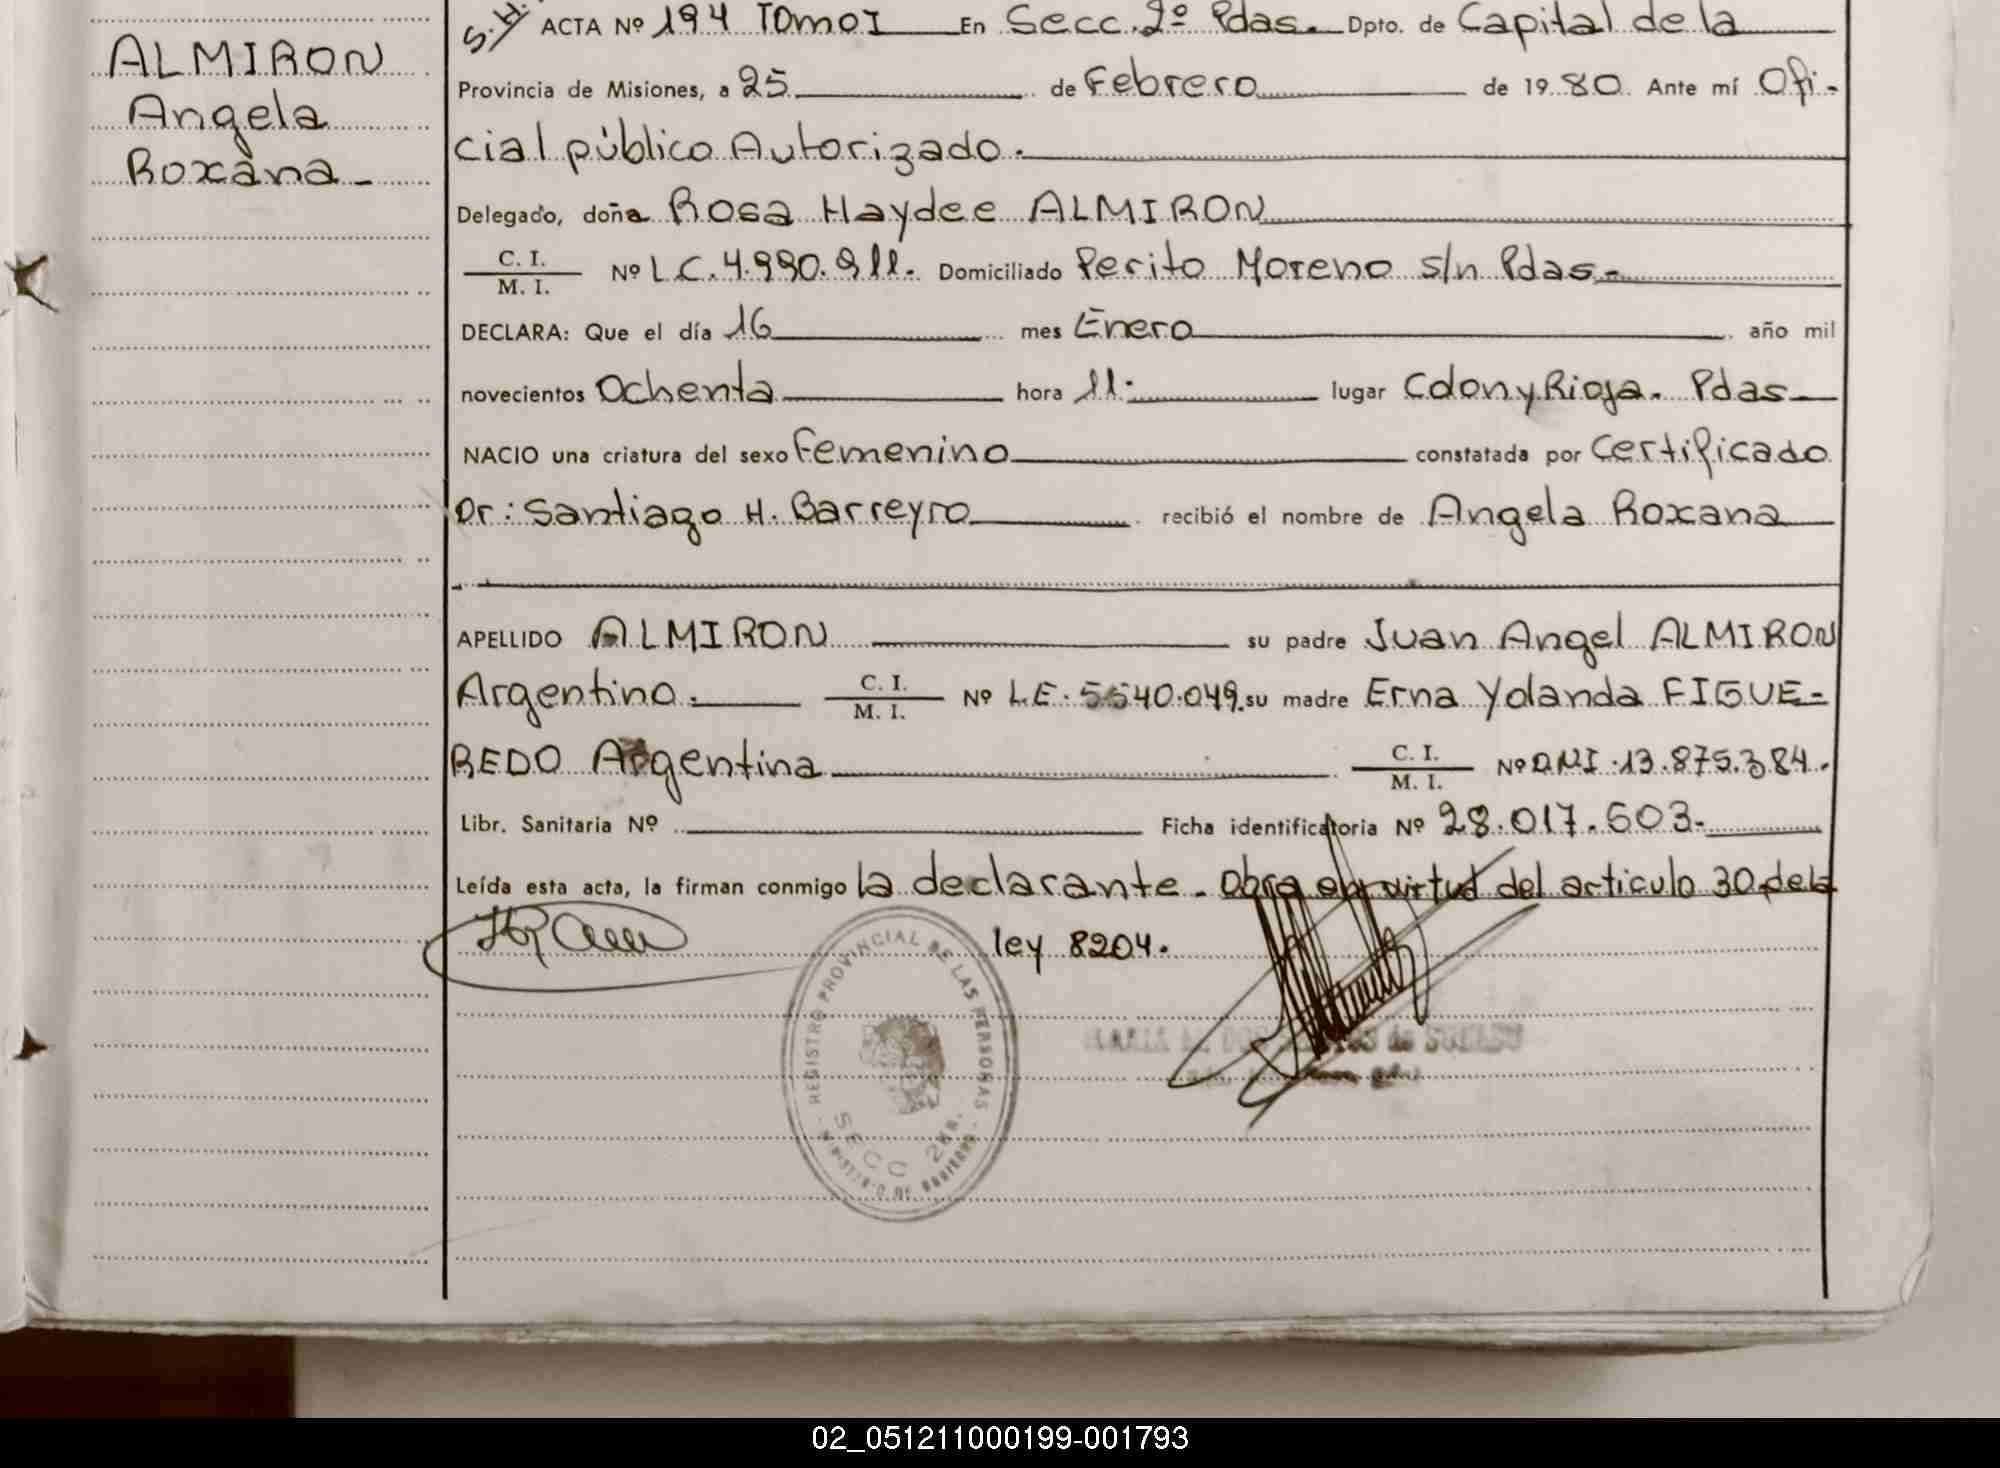 ALMIRON
Angela
Roxana-
S.H. ACTA Nº 194 TOmo I En Secc. 2º Pdas. Dpto. de Capital de la
Provincia de Misiones, a 25 de Febrero de 1980. Ante mí Ofi-
cial público Autorizado.
Delegado, doña Rosa Haydee ALMIRON
C. I.
M. I.
Nº L.C. 4.990.911. Domiciliado Perito Moreno s/n Pdas-
DECLARA: Que el día 16 mes Enero año mil
novecientos Ochenta hora 11. lugar Colon y Rioja. Pdas
NACIO una criatura del sexo Femenino constatada por Certificado
Dr: Santiago H. Barreyro recibió el nombre de Angela Roxana
APELLIDO ALMIRON su padre Juan Angel ALMIRON
Argentino. C. I.
M. I. Nº L.E. 5.540.049. su madre Erna Yolanda FIGUE-
REDO Argentina C. I.
M. I. Nº D.N.I. 13.875.384.
Libr. Sanitaria Nº Ficha identificatoria Nº 28.017.603.
Leída esta acta, la firman conmigo la declarante. Obra en virtud del articulo 30 de la
ley 8204.
REGISTRO PROVINCIAL DE LAS PERSONAS
SECC 2da.
MINISTERIO DE GOBIERNO
02_051211000199-001793